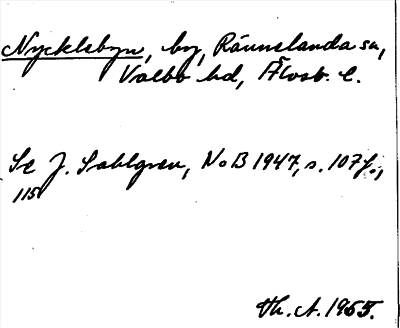 Nycklebyn, by, Rännelanda sn,
Valbo hd, Älvsb. l.
Se J. Sahlgren, NoB 1947, s. 107 f.,
115
Th. A. 1955.